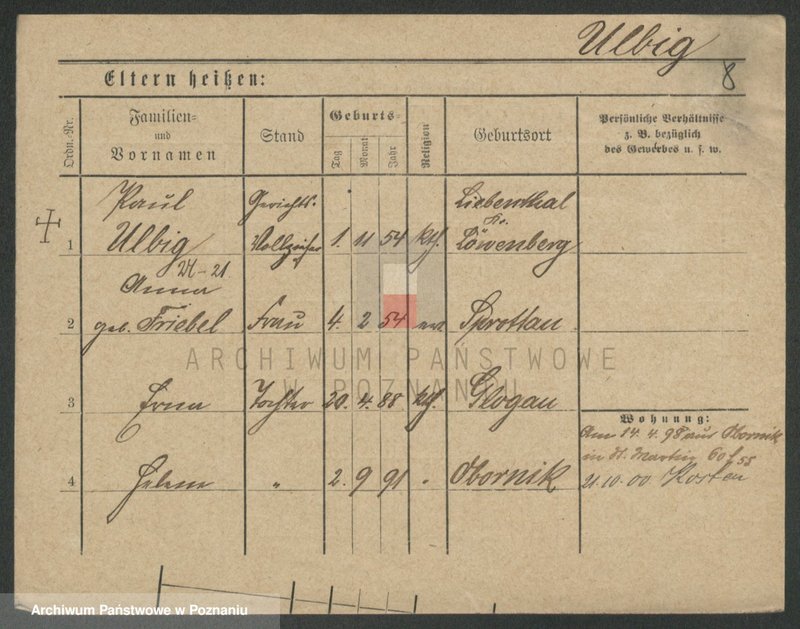 Ulbig
8
Eltern heißen:
Ordn.-Nr.
Familien- und Vornamen
Stand
Geburts-
Tag Monat Jahr
Religion
Geburtsort
Persönliche Verhältnisse
z. B. bezüglich
des Gewerbes u. s. w.
Paul Gerichts- Liebenthal
1 Ulbig Vollzieher 1. 11 54 kth. Löwenberg
24-21
Anna
2 geb. Friebel Frau 4. 2 54 Sprottau
ARCHIWUM PAŃSTWOWE
W POZNANIU
3 Erna Tochter 20. 4. 88 kth. Glogau
Wohnung:
Am 14. 4. 98 aus Obornik
in St. Martin 60
4 Helene " 2. 9 91 " Obornik
21.10.00 Kosten
Archiwum Państwowe w Poznaniu